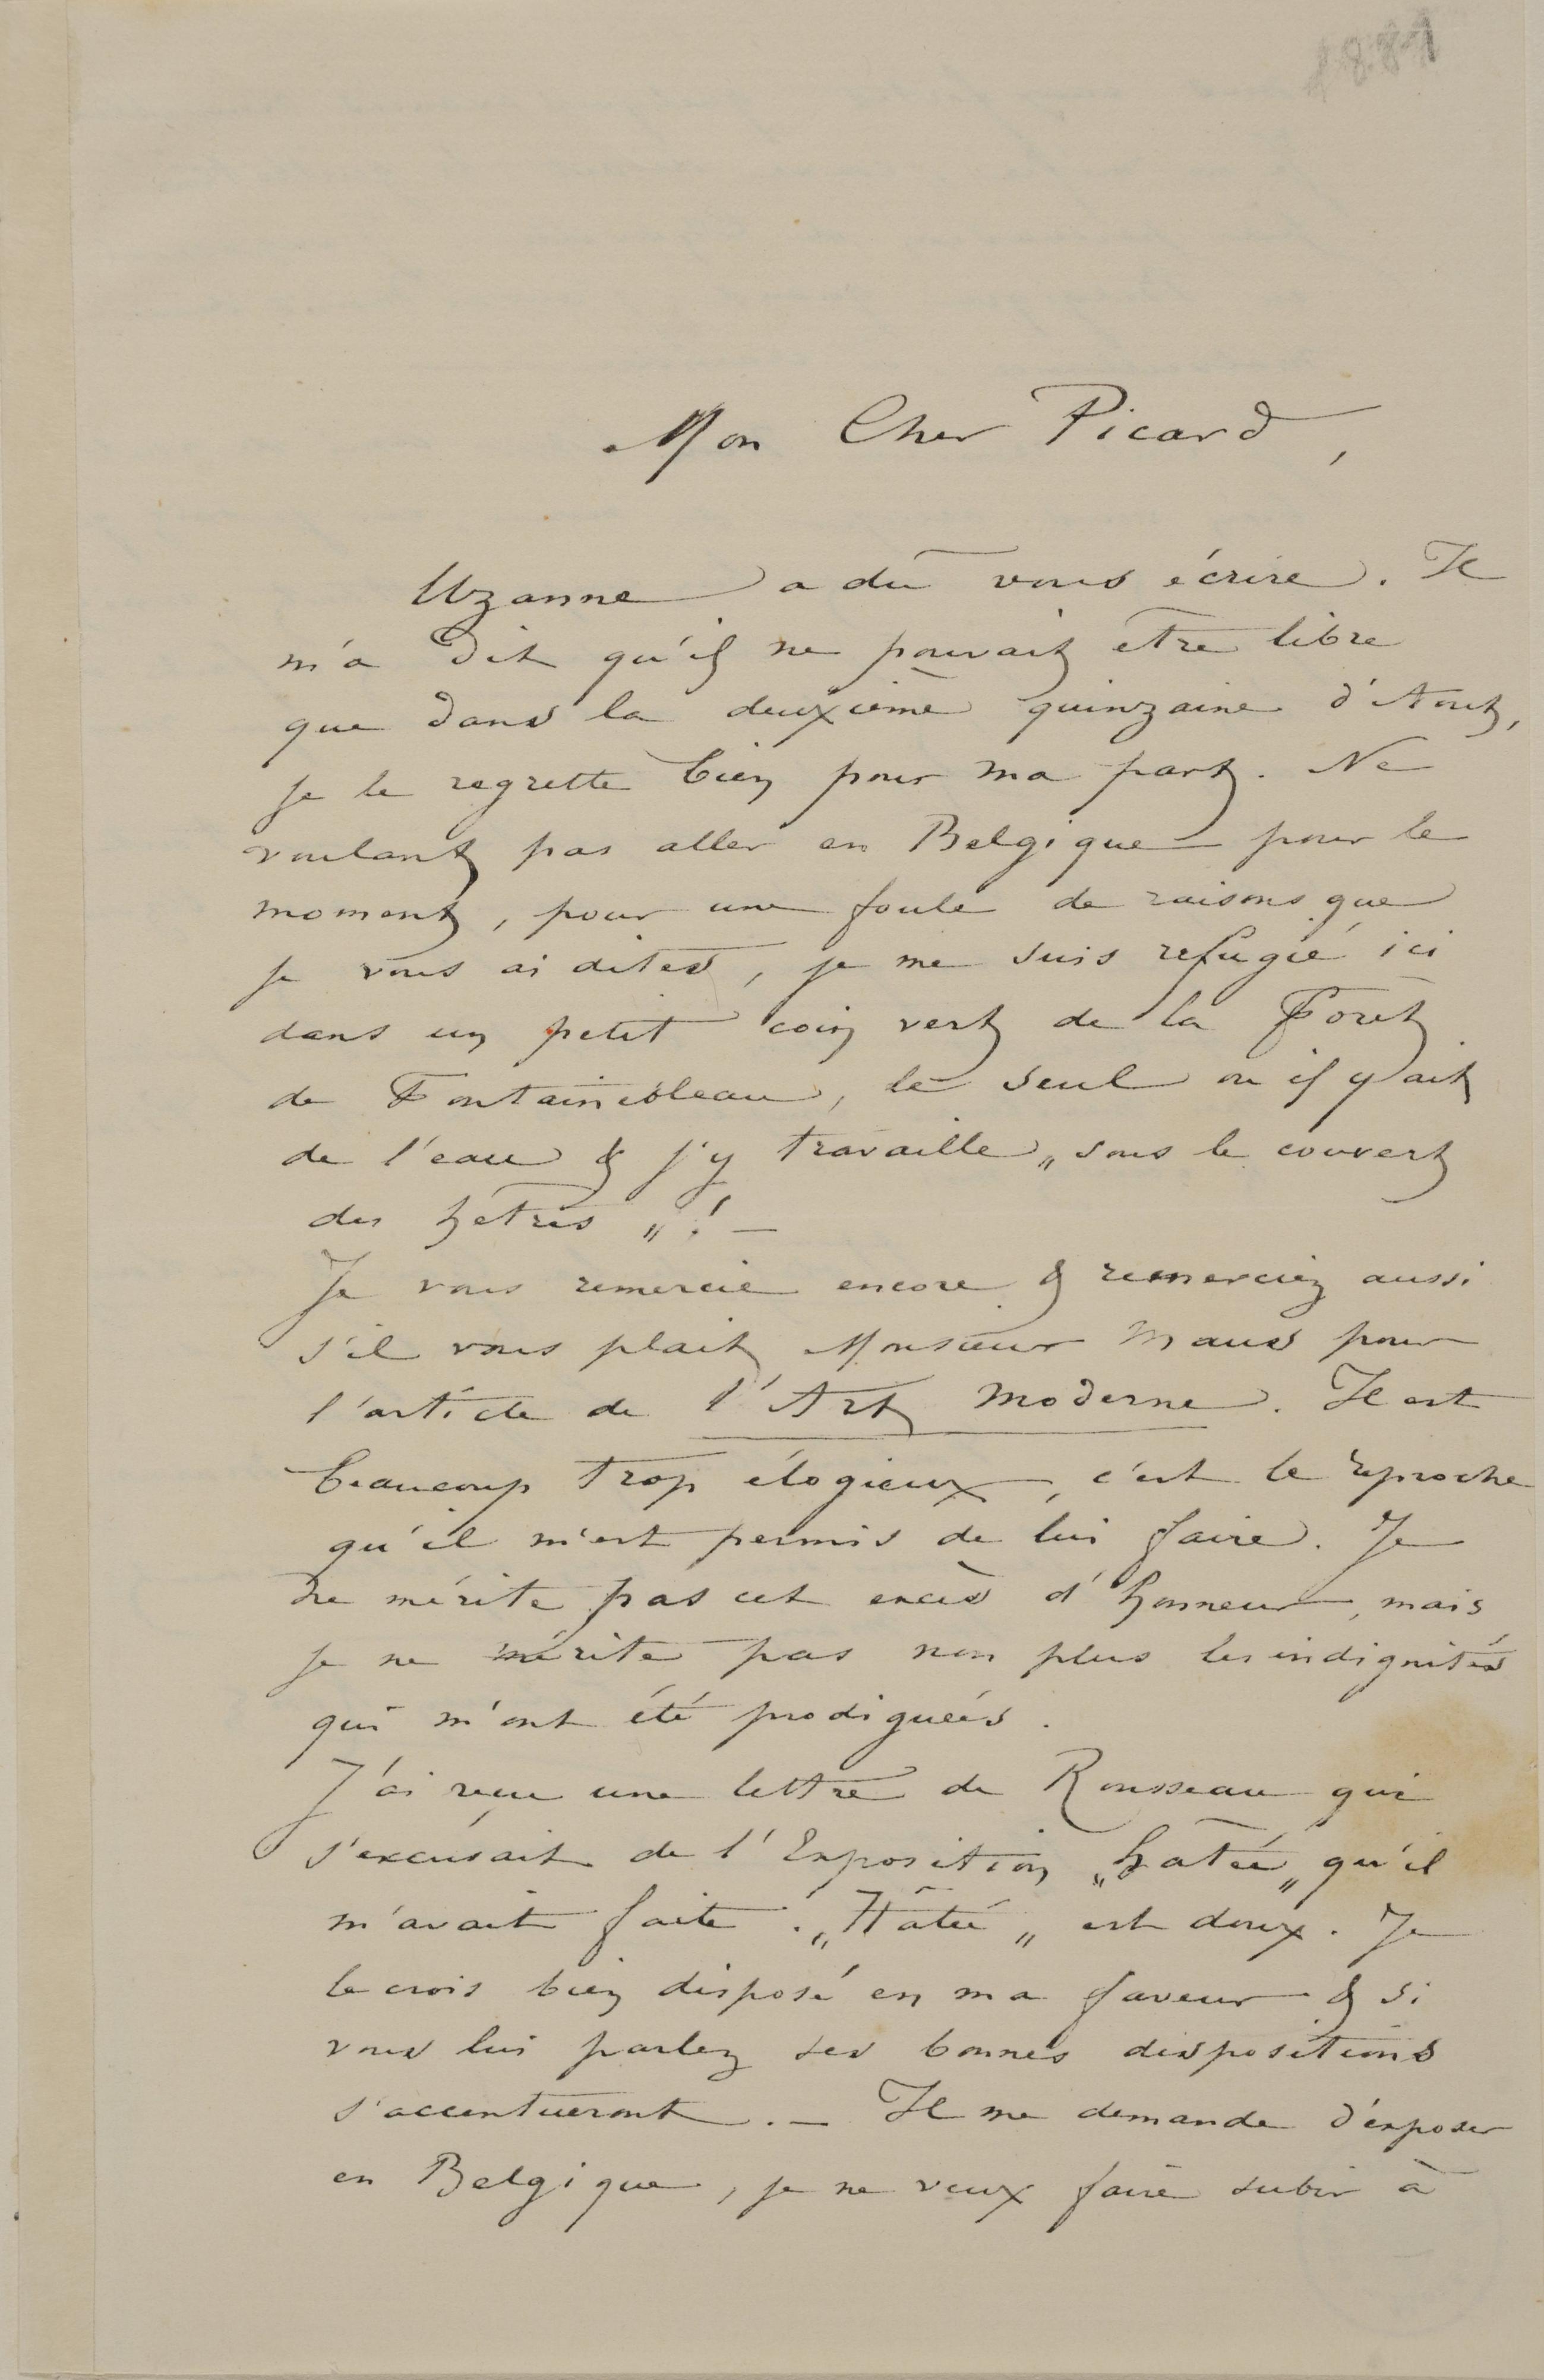 Mon Cher Picard,
Uzanne a dû vous écrire. Il
m'a dit qu'il ne pouvait être libre
que dans la deuxième quinzaine d'Aout,
je le regrette bien pour ma part. Ne
voulant pas aller en Belgique pour le
moment, pour une foule de raisons que
je vous ai dites, je me suis refugié ici
dans un petit coin vert de la Foret
de Fontainebleau, le seul ou il y ait
de l'eau & j'y travaille „sous le couvert
des hetres„! —
Je vous remercie encore & remerciez aussi
s'il vous plait Monsieur Maus pour
l'article de l'Art Moderne. Il est
beaucoup trop élogieux, c'est le reproche
qu'il m'est permis de lui faire. Je
ne mérite pas cet excès d'honneur, mais
je ne mérite pas non plus les indignités
qui m'ont été prodiguées.
J'ai reçu une lettre de Rousseau qui
s'excusait de l'Exposition „hatée„ qu'il
m'avait faite. „Hâtée„ est doux. Je
le crois bien disposé en ma faveur & si
vous lui parlez ses bonnes dispositions
s'accentueront. — Il me demande d'exposer
en Belgique, je ne veux faire subir à